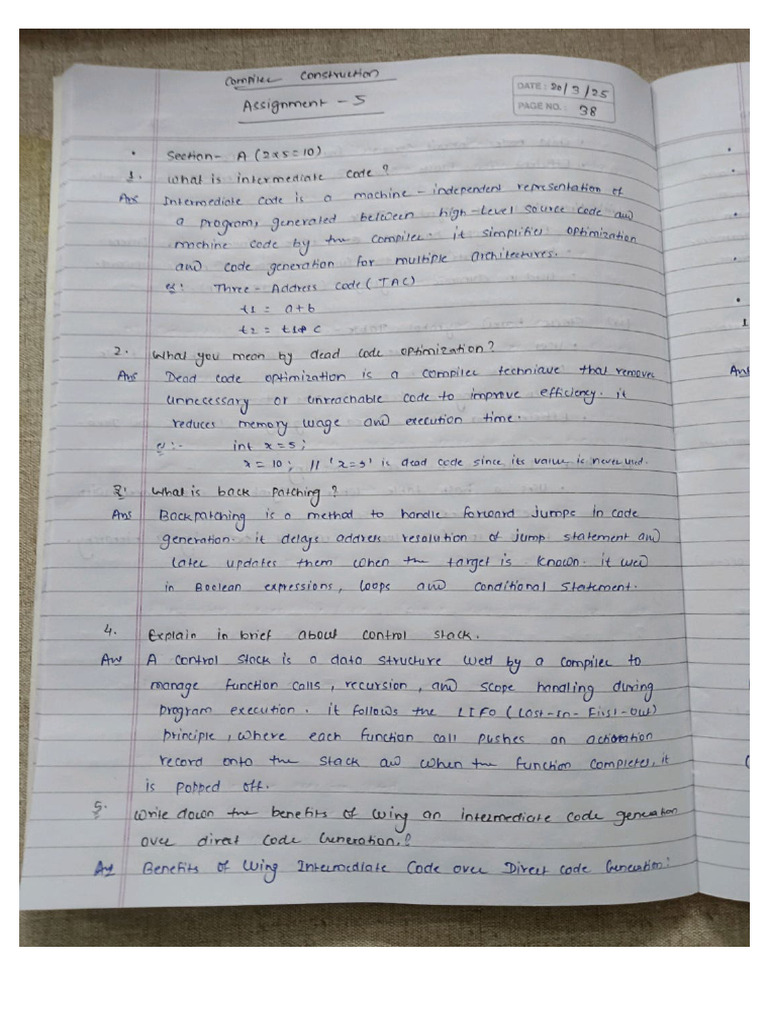 Compiler Construction
Assignment - 5
DATE: 20/3/25
PAGE NO.: 38
• Section- A (2x5=10)
1. What is intermediate code?
Ans Intermediate code is a machine - independent representation of
a program, generated between high-level source code and
machine code by the compiler. it simplifies optimization
and code generation for multiple architectures.
eg: Three - Address code (TAC)
t1 = a+b
t2 = t1* c
2. What you mean by dead code optimization?
Ans Dead code optimization is a compiler technique that removes
unnecessary or unreachable code to improve efficiency. it
reduces memory usage and execution time.
eg:- int x=5;
x=10; // 'x=5' is dead code since its value is never used.
3. What is back patching?
Ans Backpatching is a method to handle forward jumps in code
generation. it delays address resolution of jump statement and
later updates them when the target is known. it used
in Boolean expressions, loops and conditional statement.
4. Explain in brief about control stack.
Ans A control stack is a data structure used by a compiler to
manage function calls, recursion, and scope handling during
program execution. it follows the LIFO (Last-In-First-Out)
principle, where each function call pushes an activation
record onto the stack and when the function completes, it
is popped off.
5. Write down the benefits of using an intermediate code generation
over direct code Generation.?
Ans Benefits of Using Intermediate Code over Direct code Generation:
1
Ans